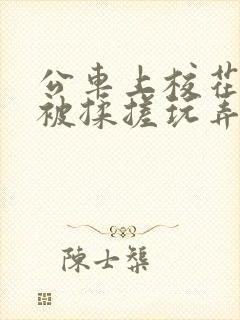 公車上校花
被揉搓玩弄
陳士榘